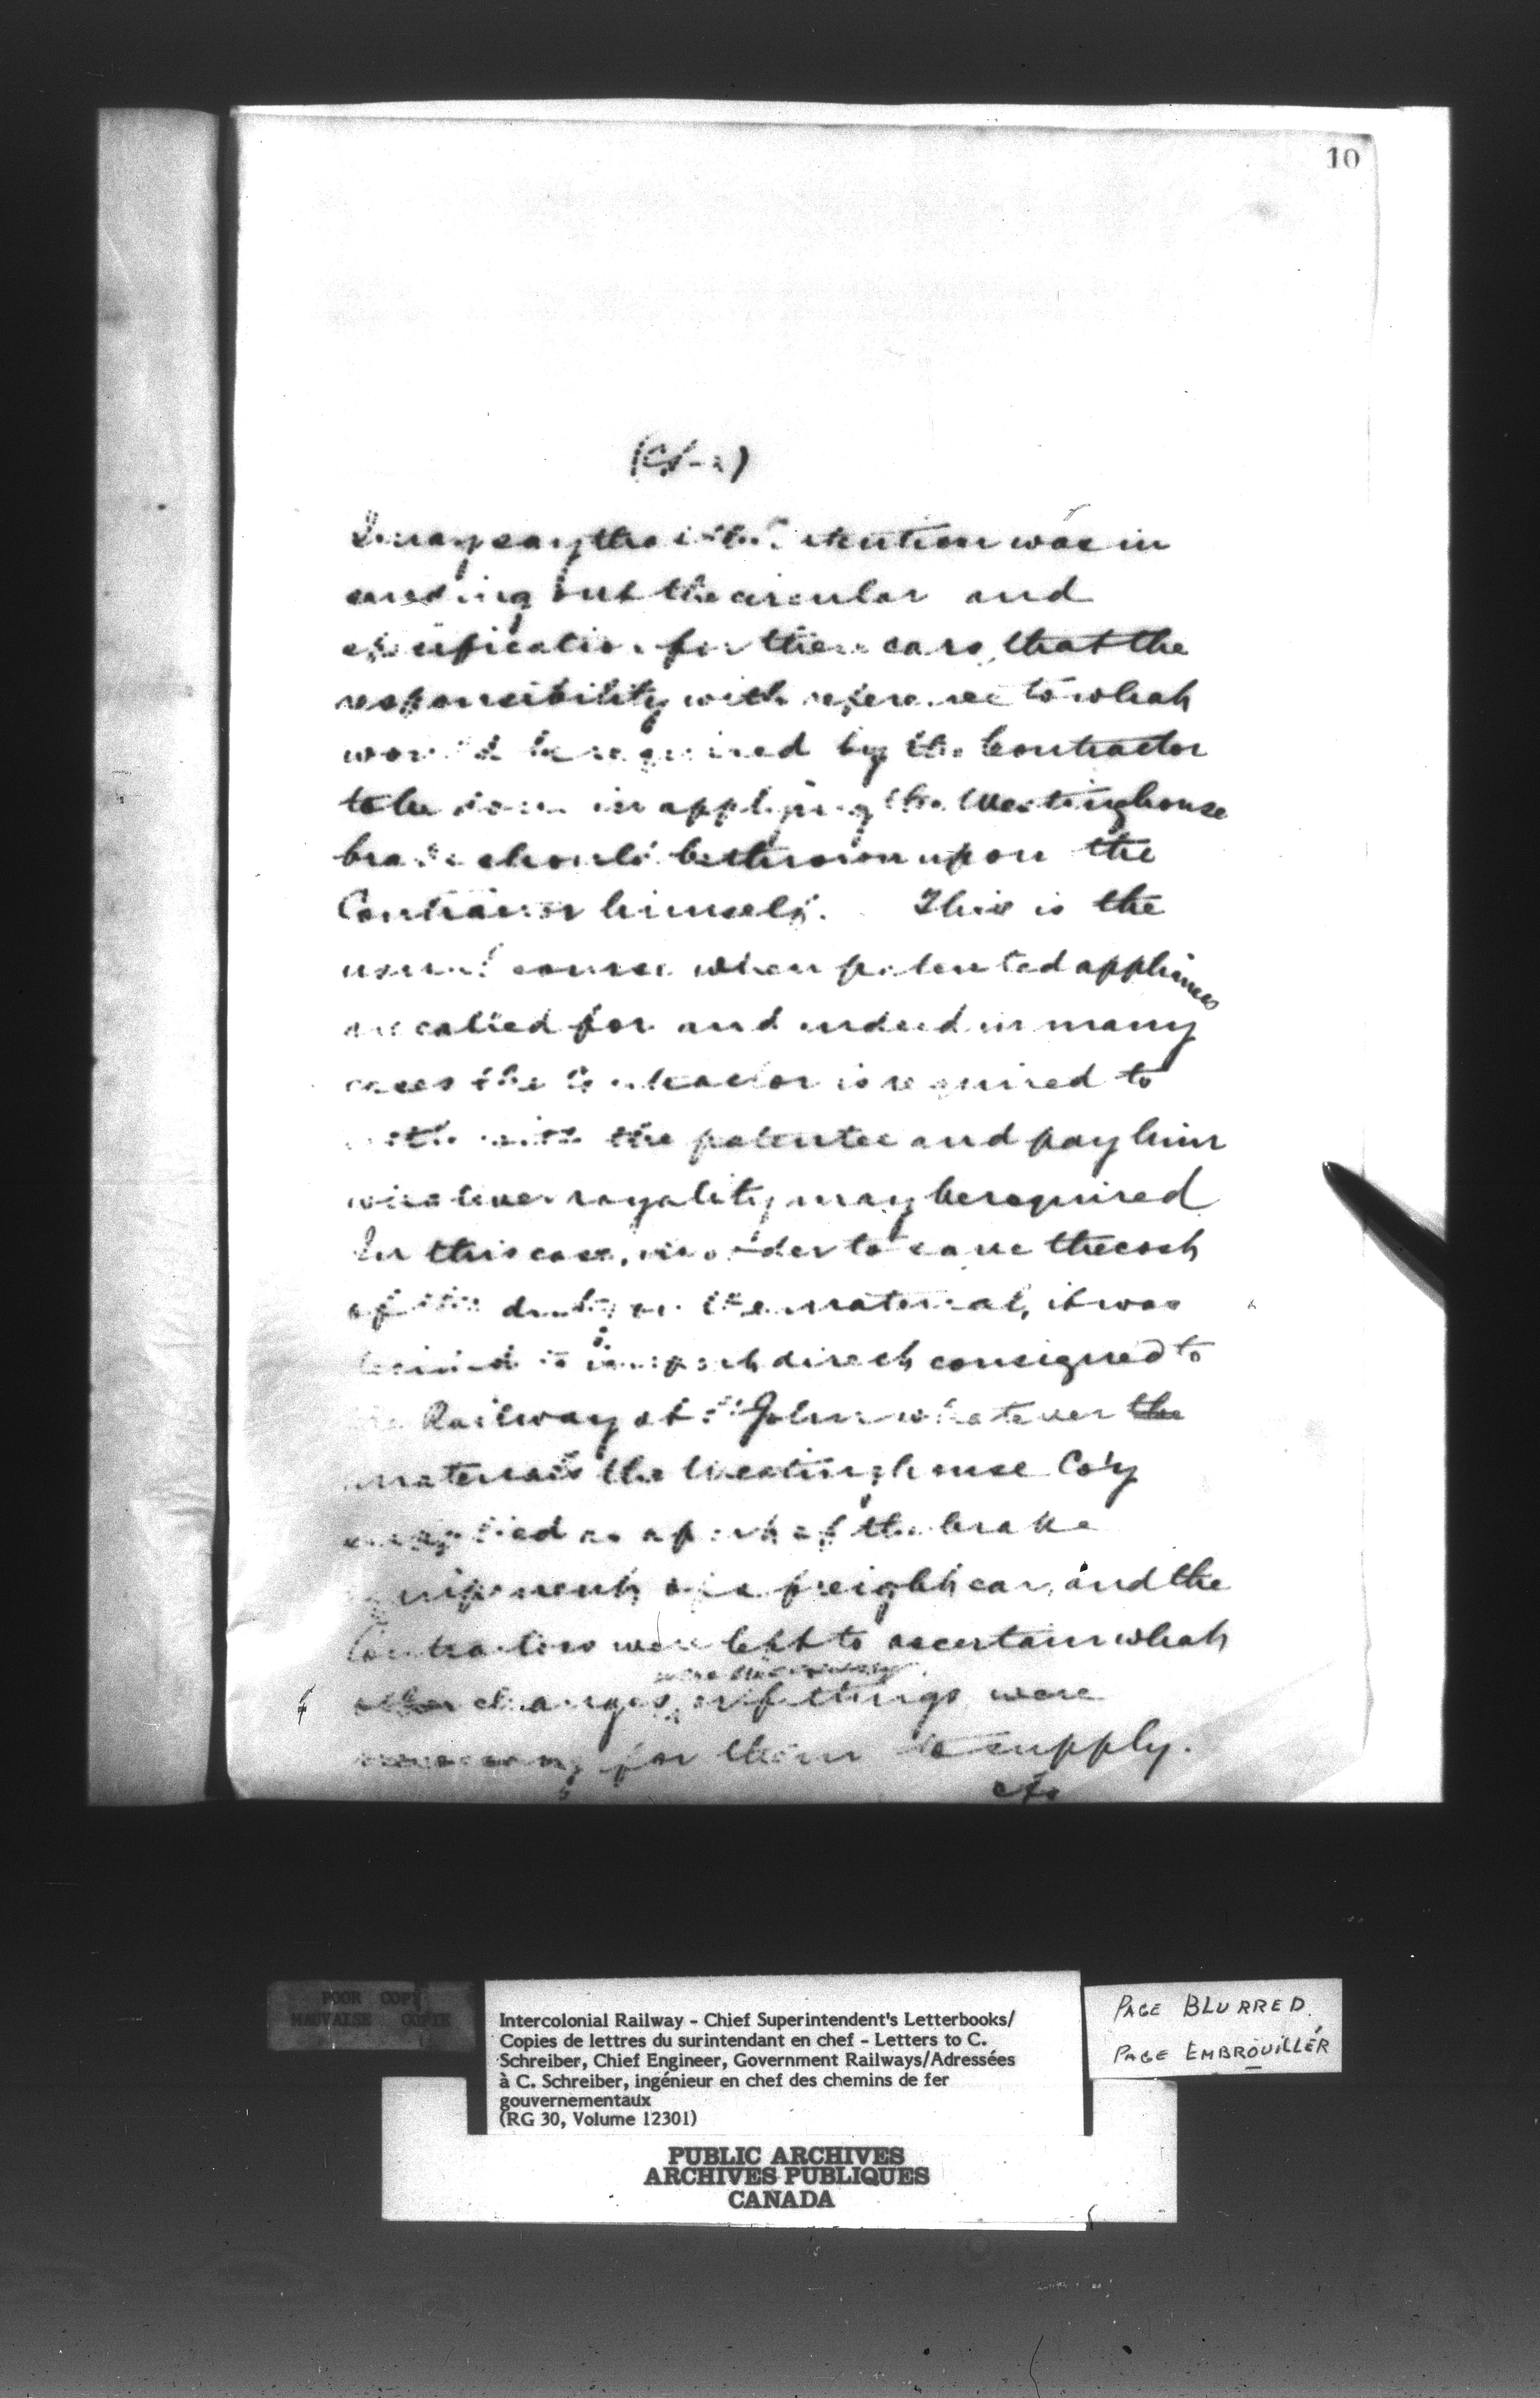 10
(CS-2)
I may say that the intention was in
sending out the circular and
specification for these cars, that the
responsibility with reference to what
would be required by the Contractor
to be done in applying the Westinghouse
brake should be thrown upon the
Contractor himself. This is the
usual course when patented appliances
are called for and indeed in many
cases the Contractor is required to
settle with the patentee and pay him
whatever royality may be required
In this case, in order to save the cost
of the duty on the material, it was
to import direct consigned to
the Railway at St John whatever the
materials the Westinghouse Co'y
supplied as a part of the brake
equipment of a freight car, and the
Contractors were left to ascertain what
other changes or fittings were
were necessary
necessary for them to supply.
POOR COPY
MAUVAISE COPIE
Intercolonial Railway - Chief Superintendent's Letterbooks/
Copies de lettres du surintendant en chef - Letters to C.
Schreiber, Chief Engineer, Government Railways/Adressées
à C. Schreiber, ingénieur en chef des chemins de fer
gouvernementaux
(RG 30, Volume 12301)
PAGE BLURRED
PAGE EMBROUILLÉR
PUBLIC ARCHIVES
ARCHIVES PUBLIQUES
CANADA